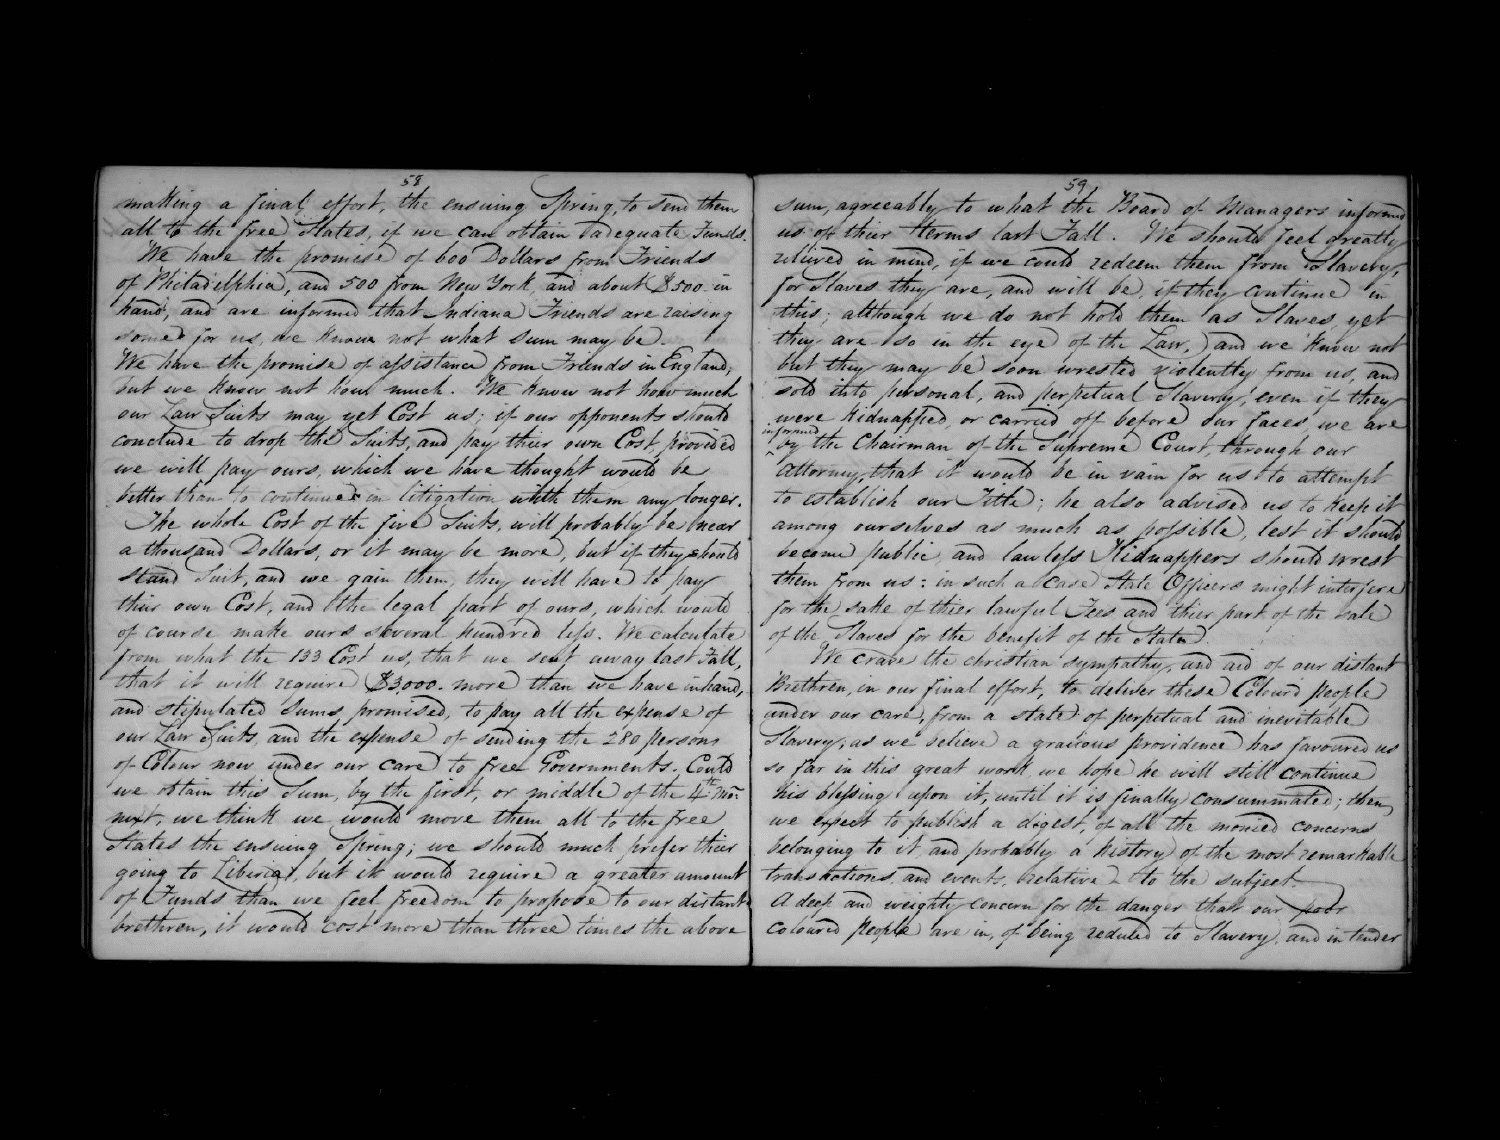 58
making a final effort, the ensuing Spring, to send them
all to the free States, if we can obtain adequate Funds.
We have the promise of 600 Dollars from Friends
of Philadelphia, and 500 from New York, and about $500 in
hand, and are informed that Indiana Friends are raising
some for us, we know not what Sum may be.
We have the promise of assistance from Friends in England,
but we know not how much. We know not how much
our Law Suits may yet Cost us; if our opponents should
conclude to drop the Suits, and pay thier own Cost, provided
we will pay ours, which we have thought would be
better than to continue in litigation with them any longer.
The whole Cost of the five Suits, will probably be near
a thousand Dollars, or it may be more, but if they should
stand Suit, and we gain them, they will have to pay
thier own Cost, and the legal part of ours, which would
of course make ours several hundred less. We calculate
from what the 133 Cost us, that we sent away last Fall,
that it will require $3000. more than we have in hand,
and stipulated Sums promised, to pay all the expense of
our Law Suits, and the expense of sending the 280 persons
of Colour now under our care to free Governments. Could
we obtain this Sum, by the first, or middle of the 4th Mo.
next, we think we would move them all to the free
States the ensuing Spring; we should much prefer thier
going to Liberia, but it would require a greater amount
of Funds than we feel freedom to propose to our distant
brethren, it would cost more than three times the above
59
sum, agreeably to what the Board of Managers informed
us of thier terms last Fall. We should feel greatly
relieved in mind, if we could redeem them from Slavery,
for Slaves they are, and will be, if they continue in
this; although we do not hold them as Slaves, yet
they are so in the eye of the Law, and we know not
but they may be soon wrested violently from us, and
sold into personal, and perpetual Slavery; even if they
were kidnapped, or carried off before our faces, we are
informed
by the Chairman of the Supreme Court, through our
Attorney, that it would be in vain for us to attempt
to establish our Title; he also advised us to keep it
among ourselves as much as possible, lest it should
become public, and lawless Kidnappers should wrest
them from us: in such a Case State Officers might interfere
for the sake of thier lawful Fees and thier part of the sale
of the Slaves for the benefit of the State.
We crave the christian sympathy, and aid of our distant
Brethren, in our final effort, to deliver these Colourd people
under our care, from a state of perpetual and inevitable
Slavery; as we believe a gracious providence has favoured us
so far in this great work, we hope he will still continue
his blessing upon it, until it is finally consummated; then
we expect to publish a digest, of all the monied concerns
belonging to it, and probably a history of the most remarkable
transactions, and events, relative to the subject.
A deep and weighty concern for the danger that our poor
coloured people are in, of being reduced to Slavery, and in tender